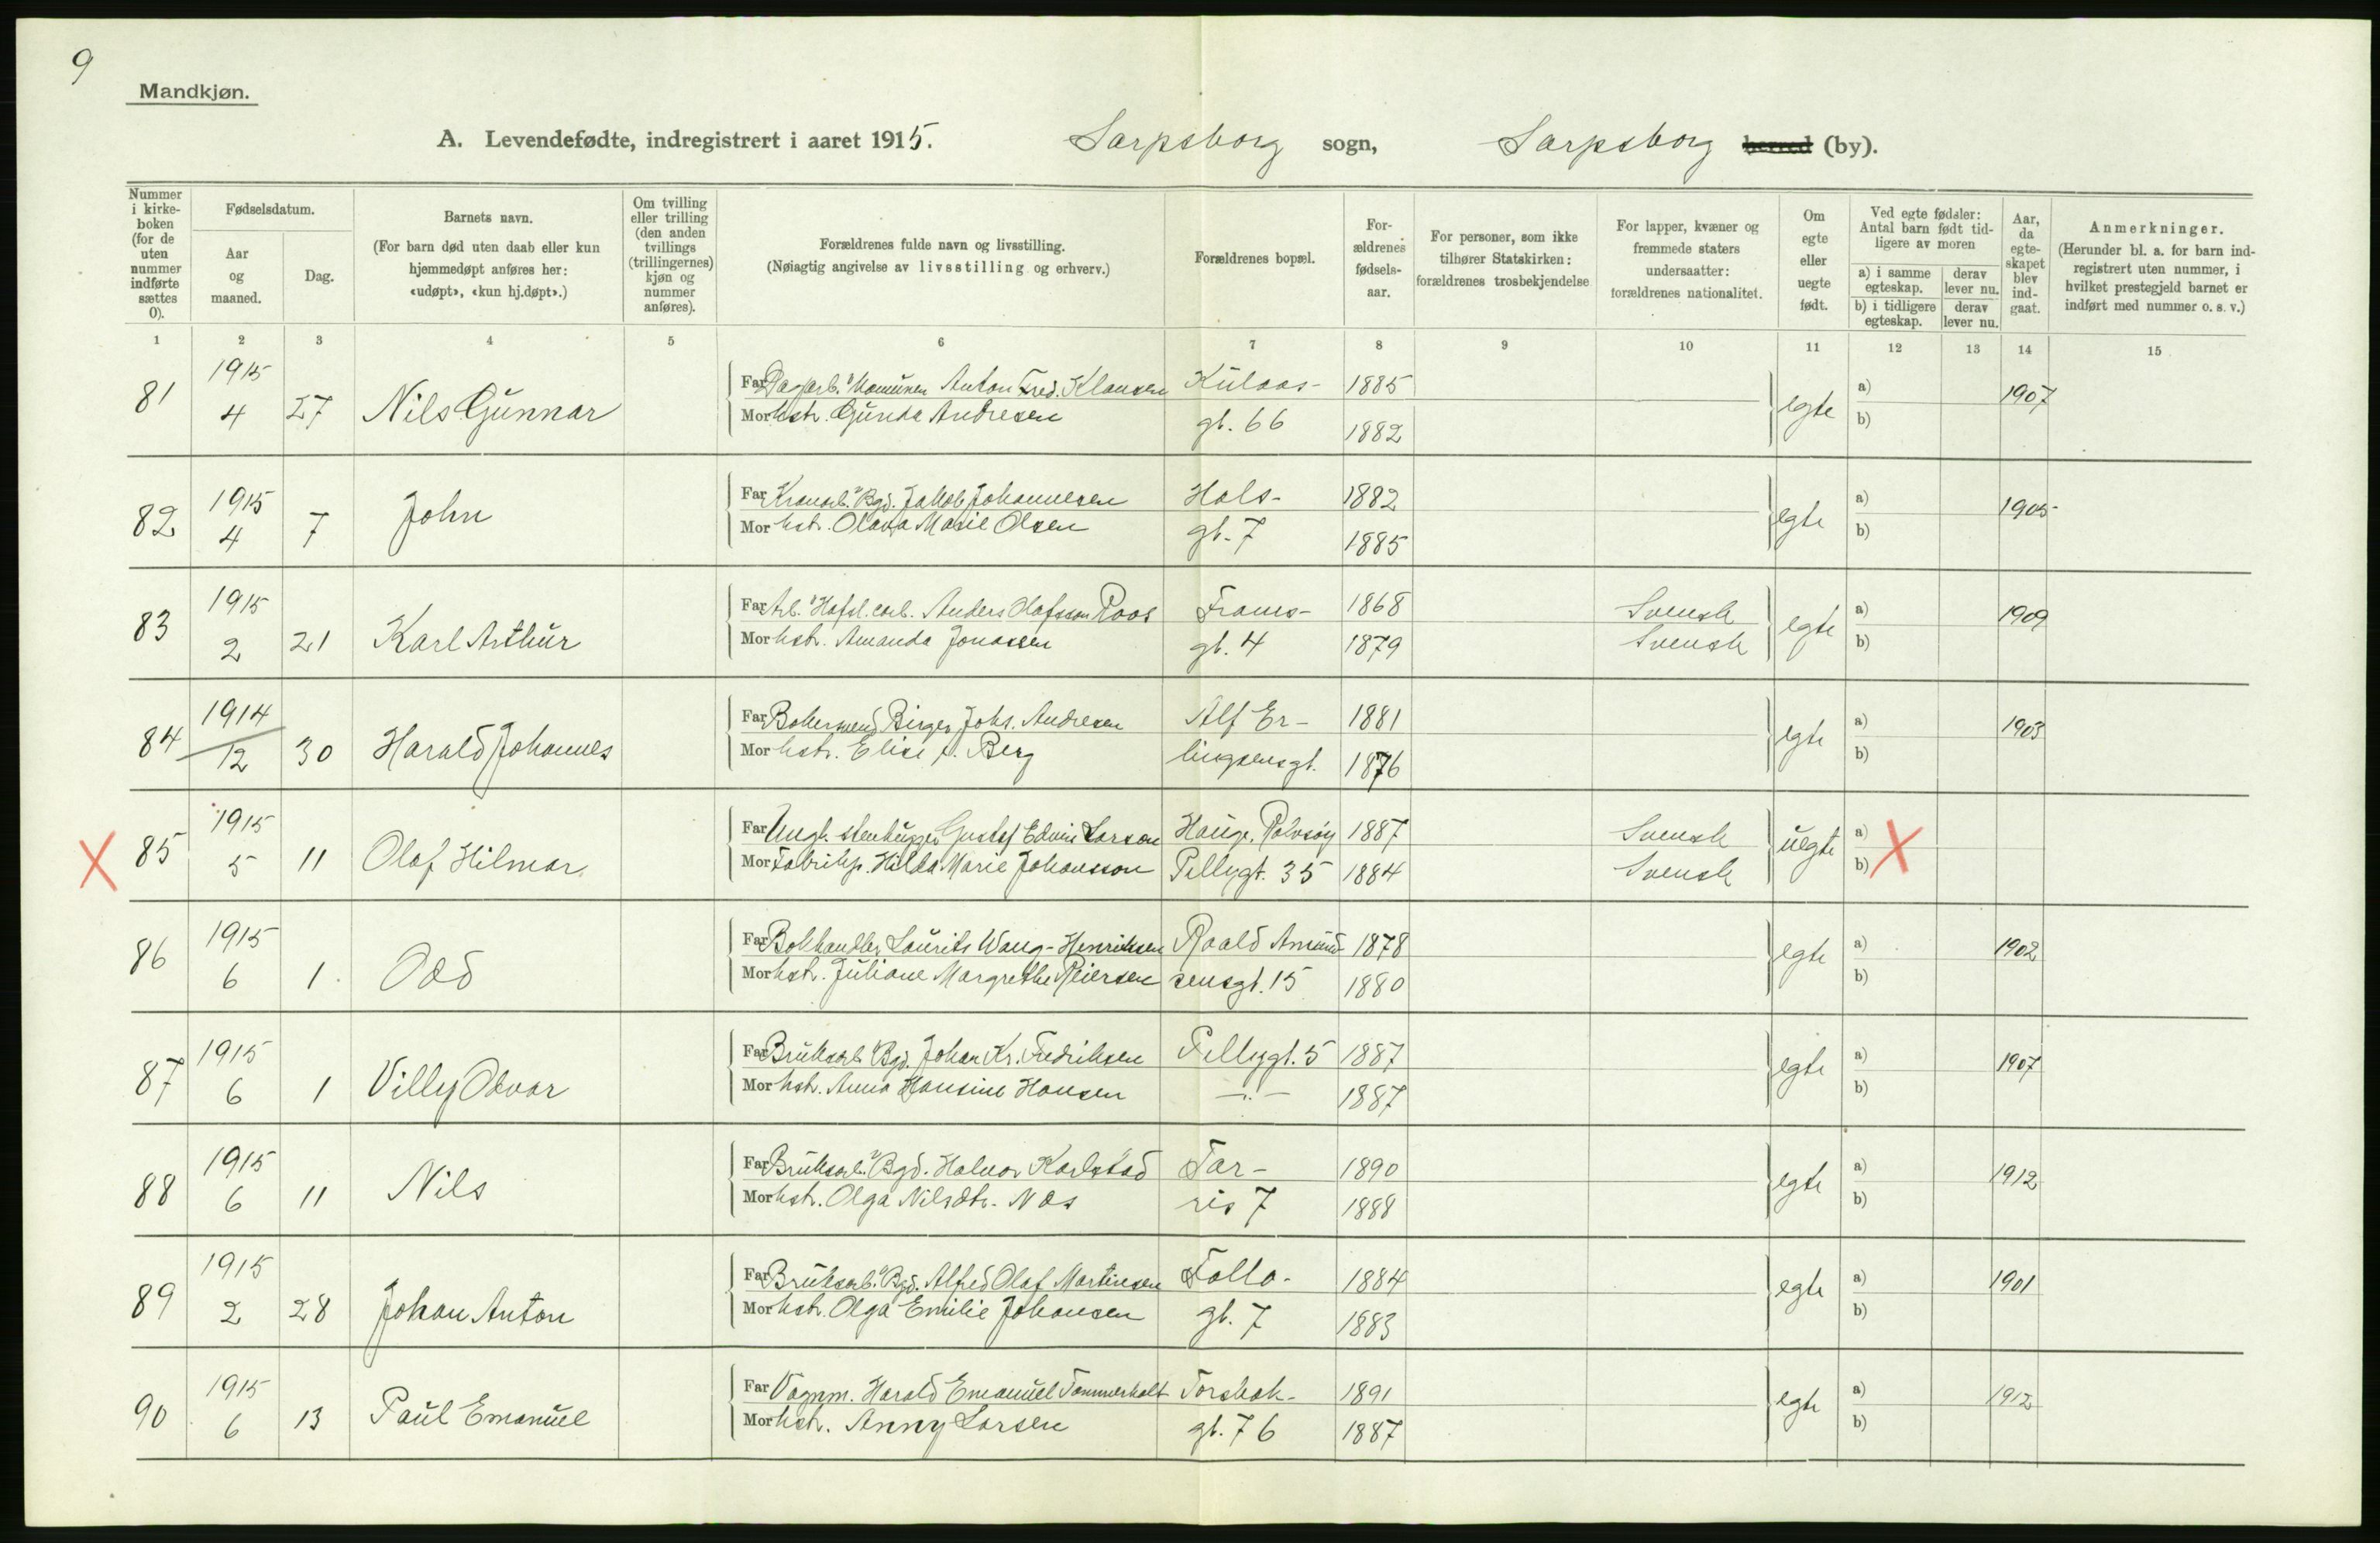 9
Mandkjøn.
A. Levendefødte, indregistrert i aaret 1915. Sarpsborg sogn, Sarpsborg herred (by).
Nummer i kirke-boken (for de uten nummer indførte sættes 0).
Fødselsdatum.
Aar og maaned.
Dag.
Barnets navn.
(For barn død uten daab eller kun hjemmedøpt anføres her: «udøpt», «kun hj.døpt».)
Om tvilling eller trilling (den anden tvillings (trillingernes) kjøn og nummer anføres).
Forældrenes fulde navn og livsstilling.
(Nøiagtig angivelse av livsstilling og erhverv.)
Forældrenes bopæl.
For-ældrenes fødsels-aar.
For personer, som ikke tilhører Statskirken: forældrenes trosbekjendelse
For lapper, kvæner og fremmede staters undersaatter: forældrenes nationalitet.
Om egte eller uegte født.
Ved egte fødsler: Antal barn født tid-ligere av moren
a) i samme egteskap.
derav lever nu.
b) i tidligere egteskap.
derav lever nu.
Aar, da egte-skapet blev ind-gaat.
Anmerkninger.
(Herunder bl. a. for barn ind-registrert uten nummer, i hvilket prestegjeld barnet er indført med nummer o. s. v.)
1 2 3 4 5 6 7 8 9 10 11 12 13 14 15
81 1915 4 27 Nils Gunnar
Far Anton Fred. Klausen Kulaas- 1885
Mor hstr. Gunda Andresen gt. 66 1882
egte a) b) 1907
82 1915 4 7 John
Far Bgd. Jakob Johannesen Hals- 1882
Mor hstr. Olava Marie Olsen gt. 7 1885
egte a) b) 1905
83 1915 2 21 Karl Arthur
Far Arb. Anders Olafsson Roos Frams- 1868 Svensk
Mor hstr. Amanda Jonassen gt. 4 1879 Svensk
egte a) b) 1909
84 1914 12 30 Harald Johannes
Far Bokersvend Birger Johs. Andresen Alf Er- 1881
Mor hstr. Elise Berg lingsensgt. 1876
egte a) b) 1903
X 85 1915 5 11 Olaf Hilmar
Far Ungk. stenhugger Gustaf Edvin Larson Hauge, Rolvsøy 1887 Svensk
Mor Fabrikp. Hilda Marie Johansson Pellygt. 35 1884 Svensk
uegte a) b) X
86 1915 6 1 Odd
Far Bokhandler Laurits Wang-Henriksen Roald Amund 1878
Mor hstr. Juliane Margrethe Reiersen sensgt. 15 1880
egte a) b) 1902
87 1915 6 1 Villy Odvar
Far Bruksarb. Bgd. Johan Kr. Fredriksen Pellygt. 5 1887
Mor hstr. Anna Hansine Hansen —"— 1887
egte a) b) 1907
88 1915 6 11 Nils
Far Bruksarb. Bgd. Halvor Karlstad Tar- 1890
Mor hstr. Olga Nilsdtr. Næs ris 7 1888
egte a) b) 1912
89 1915 2 28 Johan Anton
Far Bruksarb. Bgd. Alfred Olaf Martinsen Follo- 1884
Mor hstr. Olga Emilie Johansen gt. 7 1883
egte a) b) 1901
90 1915 6 13 Paul Emanuel
Far Vognm. Harald Emanuel Tommerholt Torsbæk- 1891
Mor hstr. Anny Larsen gt. 76 1887
egte a) b) 1912